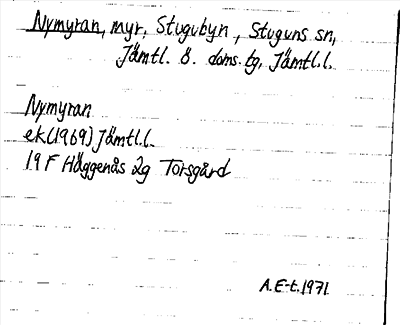 Nymyran, myr, Stugubyn, Stuguns sn,
Jämtl. ö. doms.tg, Jämtl.l.
Nymyran
ek(1969) Jämtl.l.
19 F Häggenås 2g Torsgård
A.E-t.1971